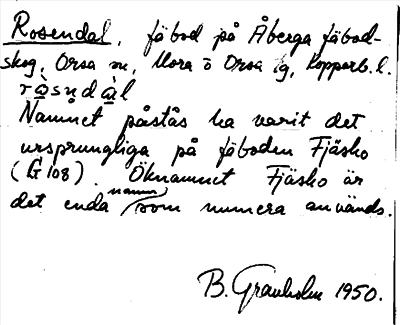 Rosendal, fäbod på Åberga fäbod-
skog, Orsa sn, Mora o Orsa tg, Kopparb. l.
ròsn̥dàl
Namnet påstås ha varit det
ursprungliga på fäboden Fjäsko
(G 108). Öknamnet Fjäsko är
det enda namn som numera används.
B. Granholm 1950.